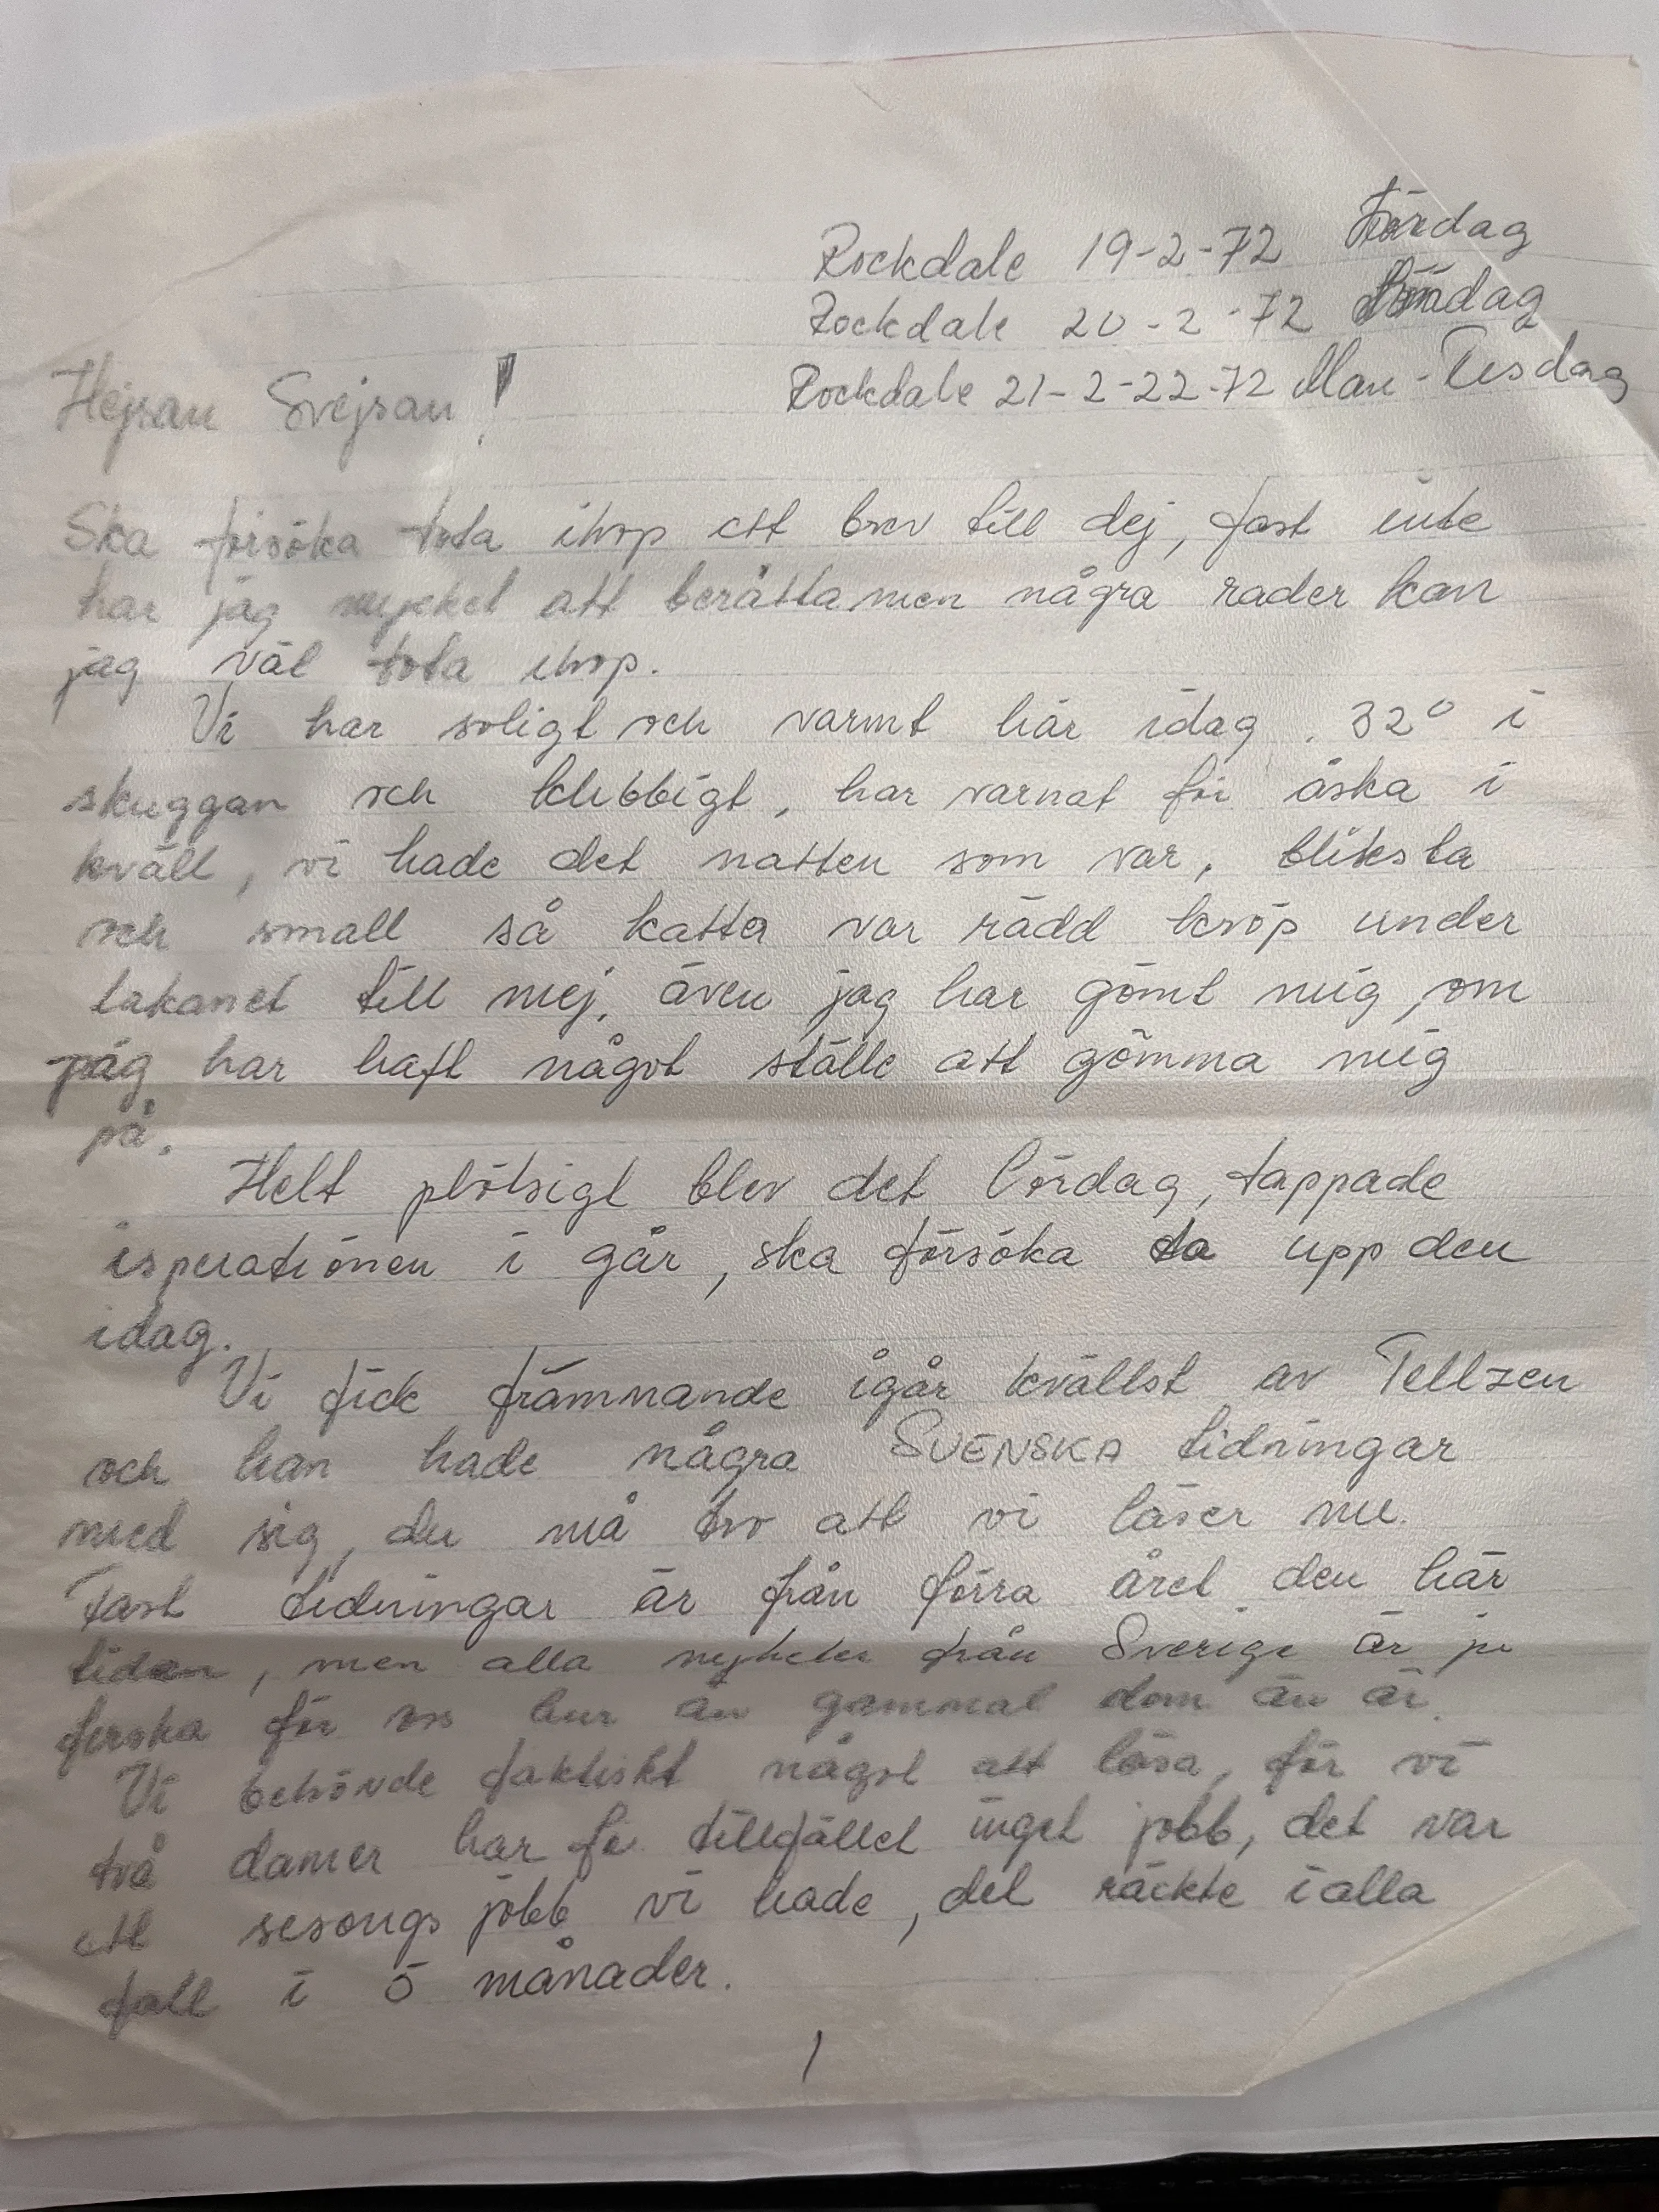 Rockdale 19-2-72 Lördag
Rockdale 20-2-72 Söndag
Rockdale 21-2-22-72 Mån-Tisdag
Hejsan Svejsan!
Ska försöka tota ihop ett brev till dej, fast inte
har jag mycket att berätta men några rader kan
jag väl tota ihop.
Vi har soligt och varmt här idag. 32° i
skuggan och klibbigt, har varnat för åska i
kväll, vi hade det natten som var, bliksta
och small så katta var rädd kröp under
lakanet till mej, även jag har gömt mig, om
jag har haft något ställe att gömma mig
på.
Helt plötsigt blev det lördag, tappade
isperationen i går, ska försöka ta upp den
idag.
Vi fick främnande igår kvällst av Tellzen
och han hade några SVENSKA tidningar
med sig, du må tro att vi läser nu.
Fast tidningar är från förra året den här
tiden, men alla nyheter från Sverige är ju
ferska för oss hur än gammal dom än är.
Vi behövde faktiskt något att läsa, för vi
två damer har för tillfället inget jobb, det var
ett sesongs jobb vi hade, det räckte i alla
fall i 5 månader.
1